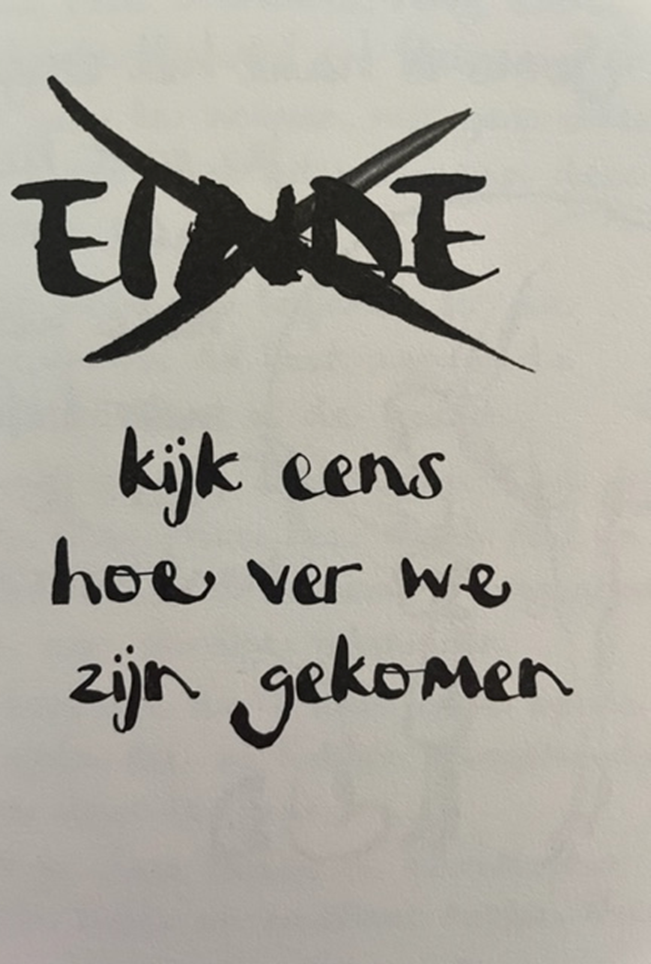 EINDE
kijk eens
hoe ver we
zijn gekomen